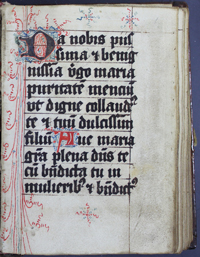 Da nobis piis
sima et benig
nissima v̄go maria
puritatē mentiū
vt digne collaud̄
te et tuū dulcissim̄
filiū Aue maria
gr̄a plena dn̄s te
cū bn̄dicta tu in
mulierib⁹ et bn̄dict⁹